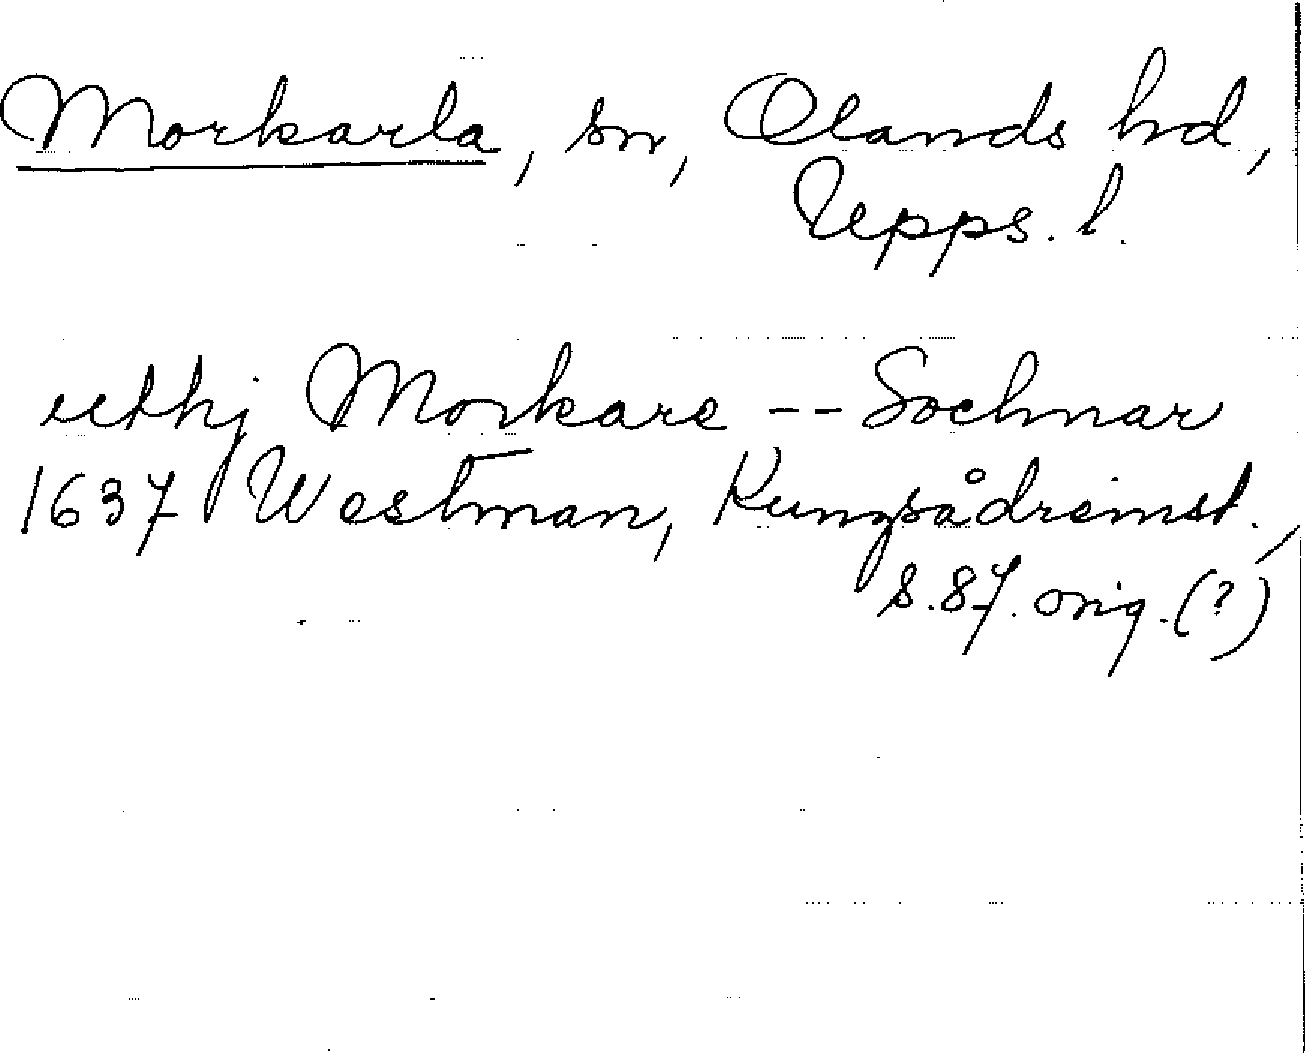 Morkarla, sn, Olands hd,
Upps. l.
uthj Morkare -- Sochnar
1637 Westman, Kungsådreinst.,
s. 87. orig. (?)